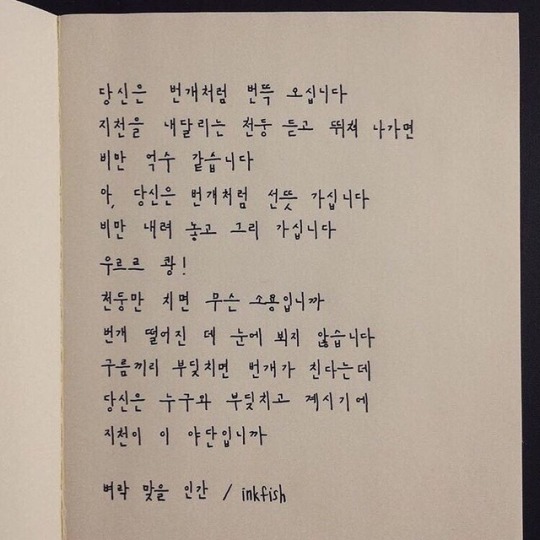 당신은 번개처럼 번뜩 오십니다
지천을 내달리는 천둥 듣고 뛰쳐 나가면
비만 억수 같습니다
아, 당신은 번개처럼 선뜻 가십니다
비만 내려 놓고 그리 가십니다
우르르 쾅!
천둥만 치면 무슨 소용입니까
번개 떨어진 데 눈에 뵈지 않습니다
구름끼리 부딪치면 번개가 친다는데
당신은 누구와 부딪치고 계시기에
지천이 이 야단입니까
벼락 맞을 인간 / inkfish